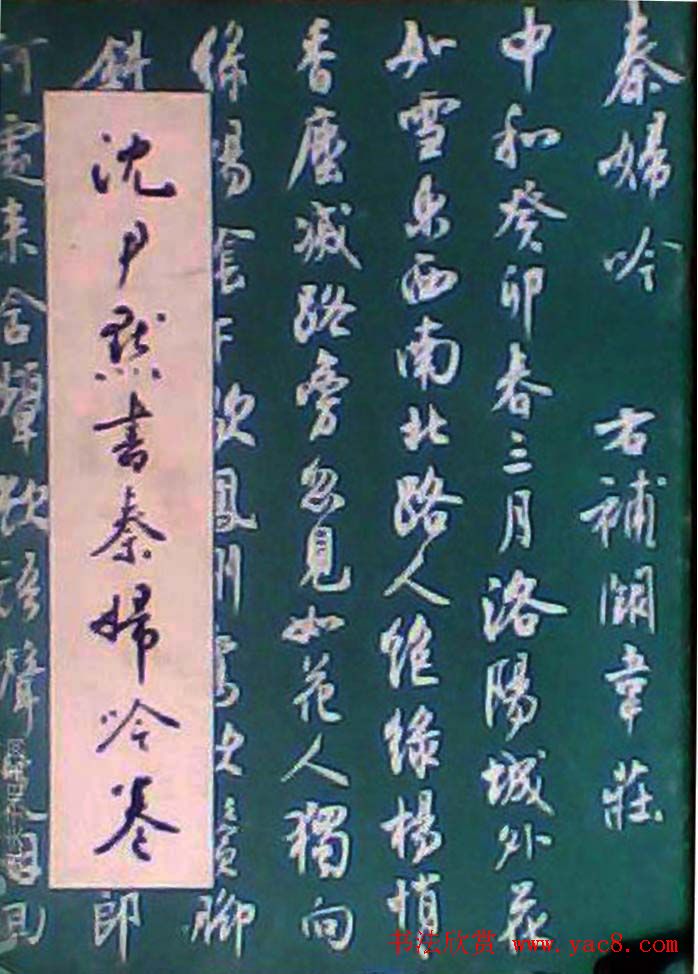 秦婦吟 右補闕韋莊
中和癸卯春三月洛陽城外花
如雪東西南北路人絕綠楊悄
香塵滅路旁忽見如花人獨向
綠楊陰下歇鳳側鸞欹鬢脚
斜 郎
何處來含顰欲語聲
沈尹默書秦婦吟卷
书法欣赏 www.yac8.com